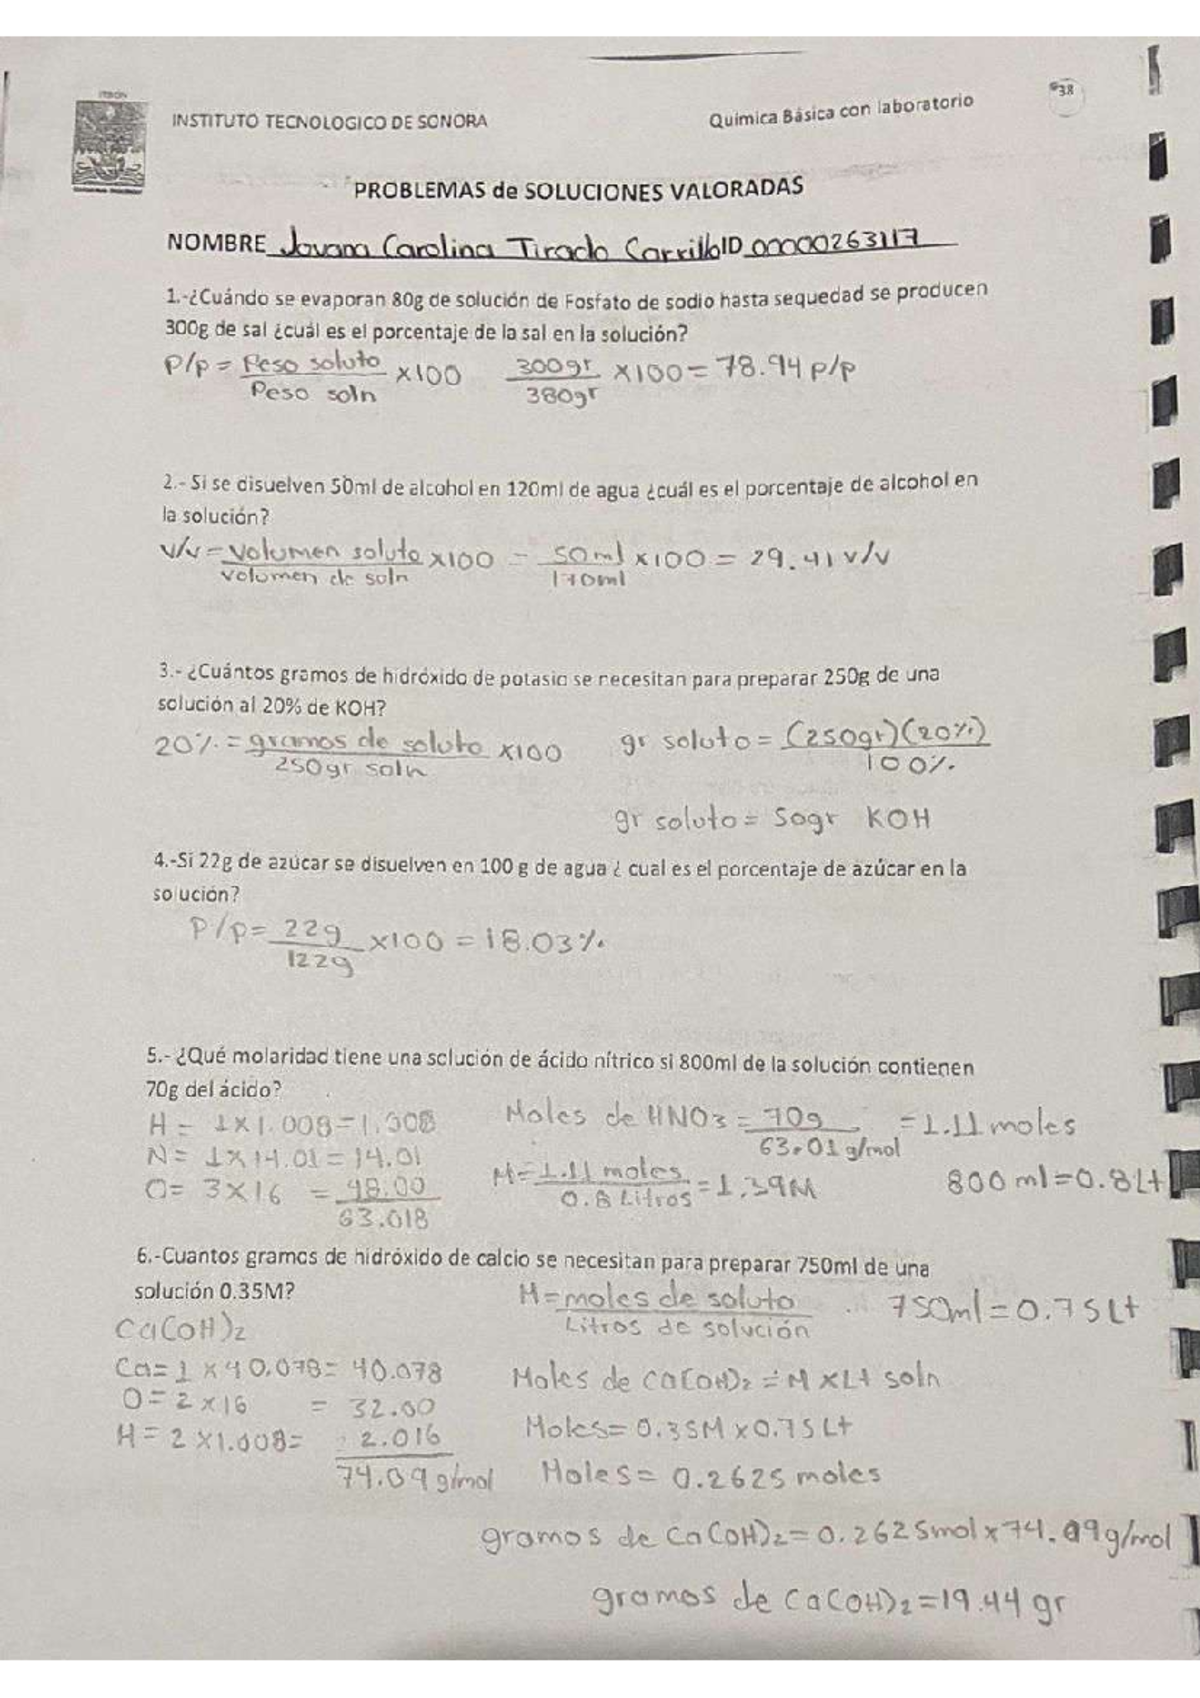 ITSON
INSTITUTO TECNOLOGICO DE SONORA
Quimica Básica con laboratorio
38
PROBLEMAS de SOLUCIONES VALORADAS
NOMBRE Jovana Carolina Tirado Carrillo ID 00000263117
1.-¿Cuándo se evaporan 80g de solución de Fosfato de sodio hasta sequedad se producen
300g de sal ¿cuál es el porcentaje de la sal en la solución?
P/p = Peso soluto / Peso soln x100   300gr / 380gr x100 = 78.94 p/p
2.- Si se disuelven 50ml de alcohol en 120ml de agua ¿cuál es el porcentaje de alcohol en
la solución?
v/v = volumen soluto / volumen de soln x100 = 50ml / 170ml x100 = 29.41 v/v
3.- ¿Cuántos gramos de hidróxido de potasio se necesitan para preparar 250g de una
solución al 20% de KOH?
20% = gramos de soluto / 250gr soln x100   gr soluto = (250gr)(20%) / 100%
gr soluto = 50gr KOH
4.-Si 22g de azúcar se disuelven en 100 g de agua ¿ cual es el porcentaje de azúcar en la
solución?
P/p = 22g / 122g x100 = 18.03%
5.- ¿Qué molaridad tiene una solución de ácido nítrico si 800ml de la solución contienen
70g del ácido?
H = 1x1.008=1.008   Moles de HNO3 = 70g / 63.01 g/mol = 1.11 moles
N = 1x14.01=14.01
O= 3x16 = 48.00   M = 1.11 moles / 0.8 Litros = 1.39M   800 ml=0.8Lt
63.018
6.-Cuantos gramos de hidróxido de calcio se necesitan para preparar 750ml de una
solución 0.35M?   M = moles de soluto / Litros de solución   750ml=0.75Lt
Ca(OH)2
Ca=1 x 40.078= 40.078   Moles de Ca(OH)2 = M x Lt soln
O=2x16 = 32.00   Moles= 0.35M x 0.75Lt
H=2x1.008= 2.016
74.09 g/mol   Moles= 0.2625 moles
gramos de Ca(OH)2=0.2625mol x 74.09g/mol
gramos de Ca(OH)2=19.44 gr